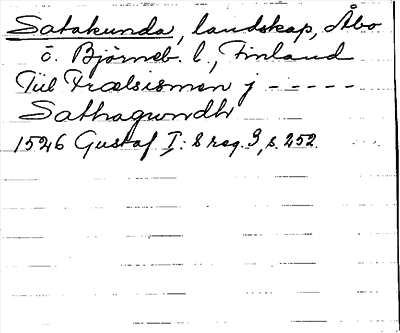 Satakunda, landskap, Åbo
o. Björneb. l., Finland
Till Frælsismen j - - - - -
Sathagwndh
1526 Gustaf I: s reg. 3, s. 252.